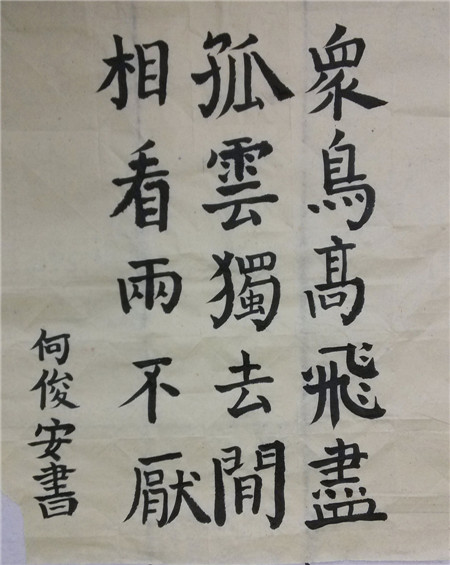 眾鳥高飛盡
孤雲獨去閒
相看兩不厭
何俊安書